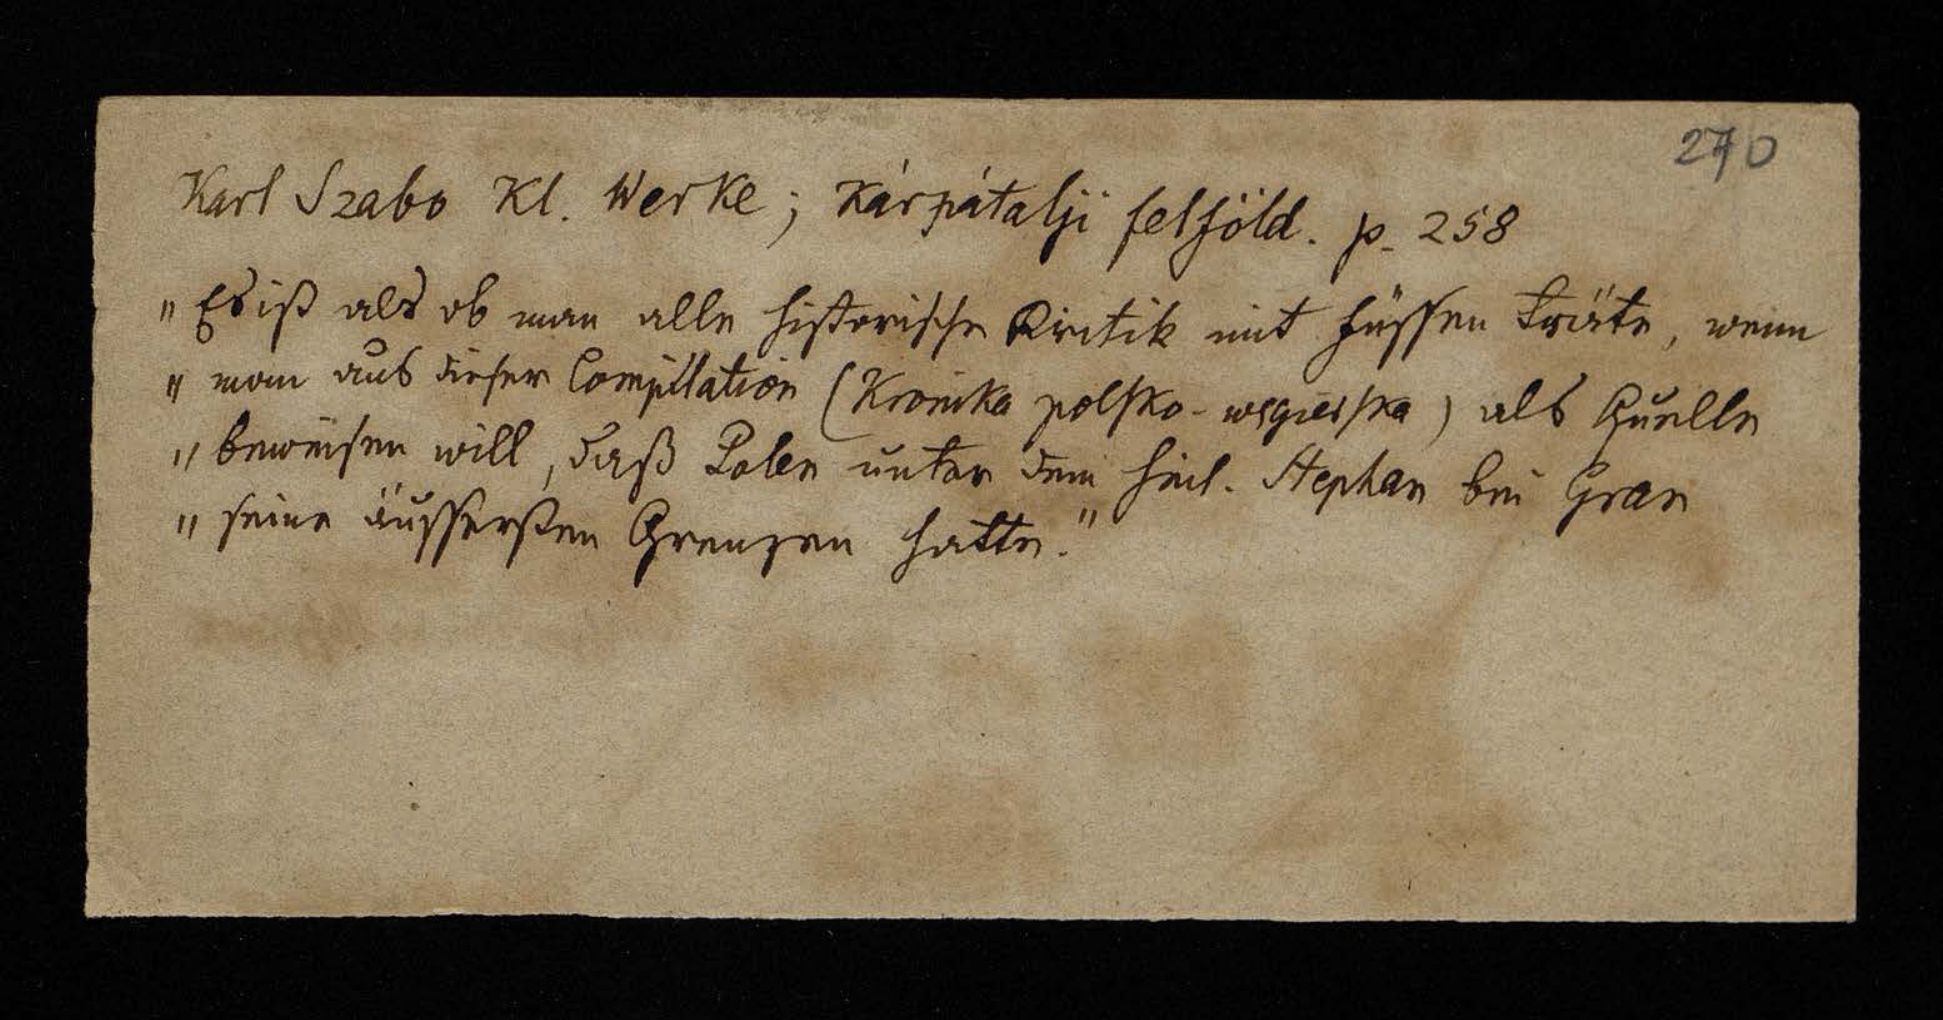 270
Karl Szabo Kl. Werke; Kárpátalji felföld. p. 258
„Es ist als ob man alle historische Kritik mit Füssen träte, wenn
„man aus dieser Compilation (Kronika polsko-wegierska) als Quelle
„beweisen will, daß Polen unter dem heil. Stephan bei Gran
„seine äussersten Grenzen hatte."